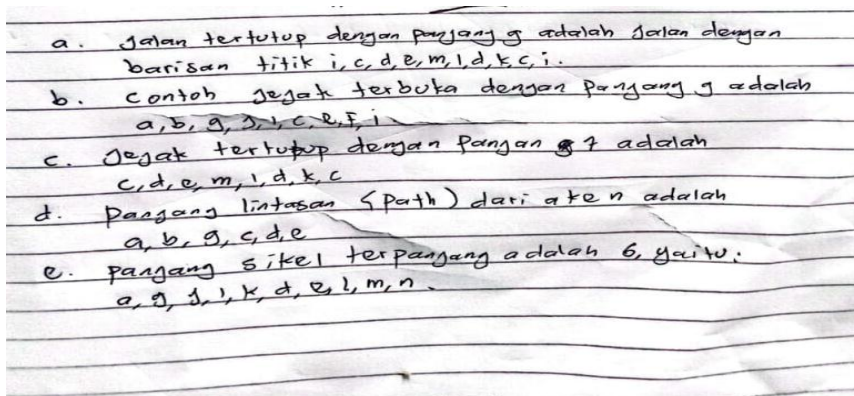 a. Jalan tertutup dengan panjang 9 adalah Jalan dengan
barisan titik i, c, d, e, m, l, d, k, c, i.
b. contoh Jejak terbuka dengan Panjang 9 adalah
a, b, g, j, i, c, e, f, i
c. Jejak tertutup dengan Pangan 7 adalah
c, d, e, m, l, d, k, c
d. Pangang lintasan (Path) dari a ke n adalah
a, b, g, c, d, e
e. Pangang sikel terpangang adalah 6, yaitu:
a, g, j, i, k, d, e, l, m, n.